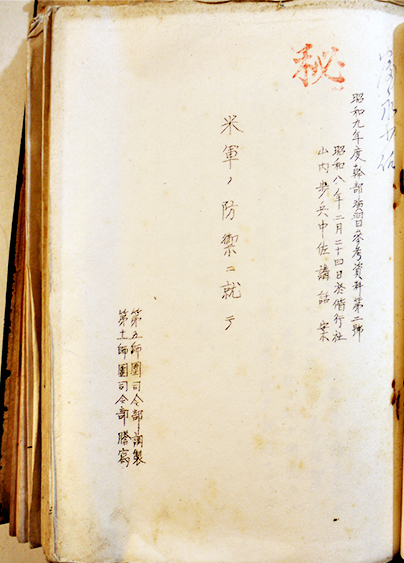 秘
昭和九年度幹部演習参考資料第二號
昭和八年二月二十四日於偕行社
山内歩兵中佐講話案
米軍ノ防禦ニ就テ
第五師團司令部調製
第十一師團司令部謄寫